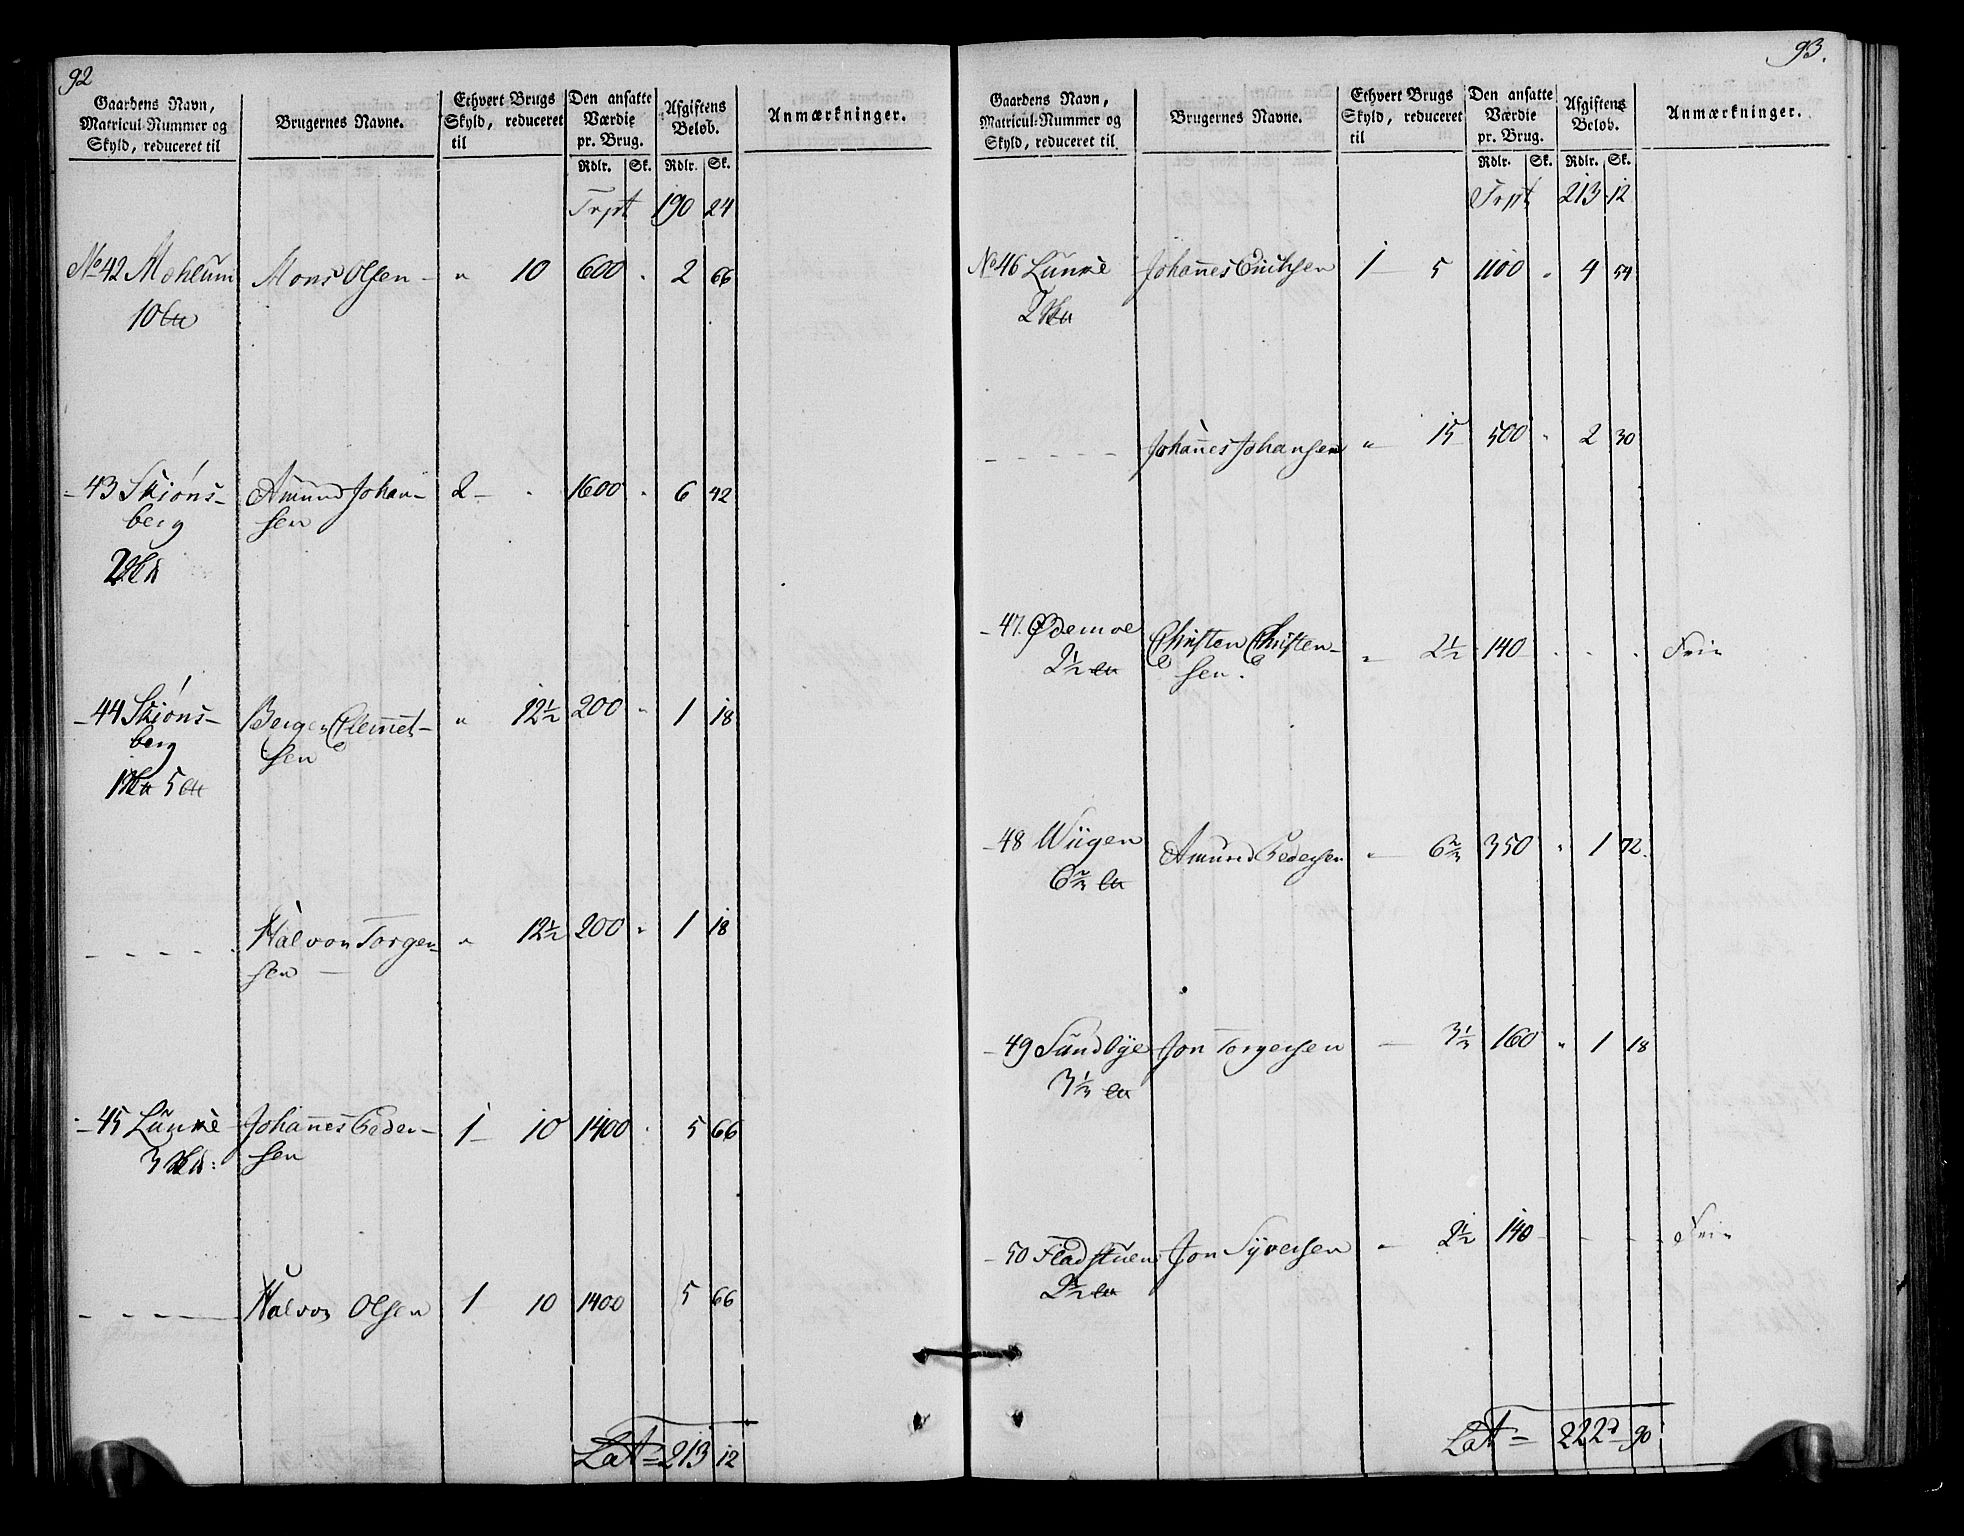 92
Gaardens Navn, Matricul-Nummer og Skyld, reduceret til | Brugernes Navne. | Ethvert Brugs Skyld, reduceret til | Den ansatte Værdie pr. Brug. | Afgiftens Beløb. | Anmærkninger.
Rdlr. Sk. Rdlr. Sk.
Trpt 190 24
No 42 Mohlum Mons Olsen - " 10 600 " 2 66
10
- 43 Skiøns- Amund Johan- 2 - " 1600 " 6 42
berg sen
2
- 44 Skiøns- Berger Clemet- " 12½ 200 " 1 18
berg sen
1 5
- - - - Halvor Torger- " 12½ 200 " 1 18
sen
- 45 Lunke Johannes Peder- 1 - 10 1400 " 5 66
3 sen
- - - - Halvor Olsen 1 10 1400 5 66
Lat = 213 12
93.
Gaardens Navn, Matricul-Nummer og Skyld, reduceret til | Brugernes Navne. | Ethvert Brugs Skyld, reduceret til | Den ansatte Værdie pr. Brug. | Afgiftens Beløb. | Anmærkninger.
Rdlr. Sk. Rdlr. Sk.
Trpt 213 12
No 46 Lunke Johannes Erichsen 1 - 5 1100 " 4 54
2
- - - - - Johannes Johansen " 15 500 " 2 30
- 47. Ødemoe Christen Christen- " 2½ 140 " " " Frie
2½ sen.
- 48 Wiigen Amund Pedersen " 6⅔ 350 " 1 72.
6⅔
- 49 Sundbye Jon Torgersen - 3⅓ 160 " 1 18
3⅓
- 50 Fladstuen Jon Syversen " 2½ 140 - - - Frie
2½
Lat = 222 90